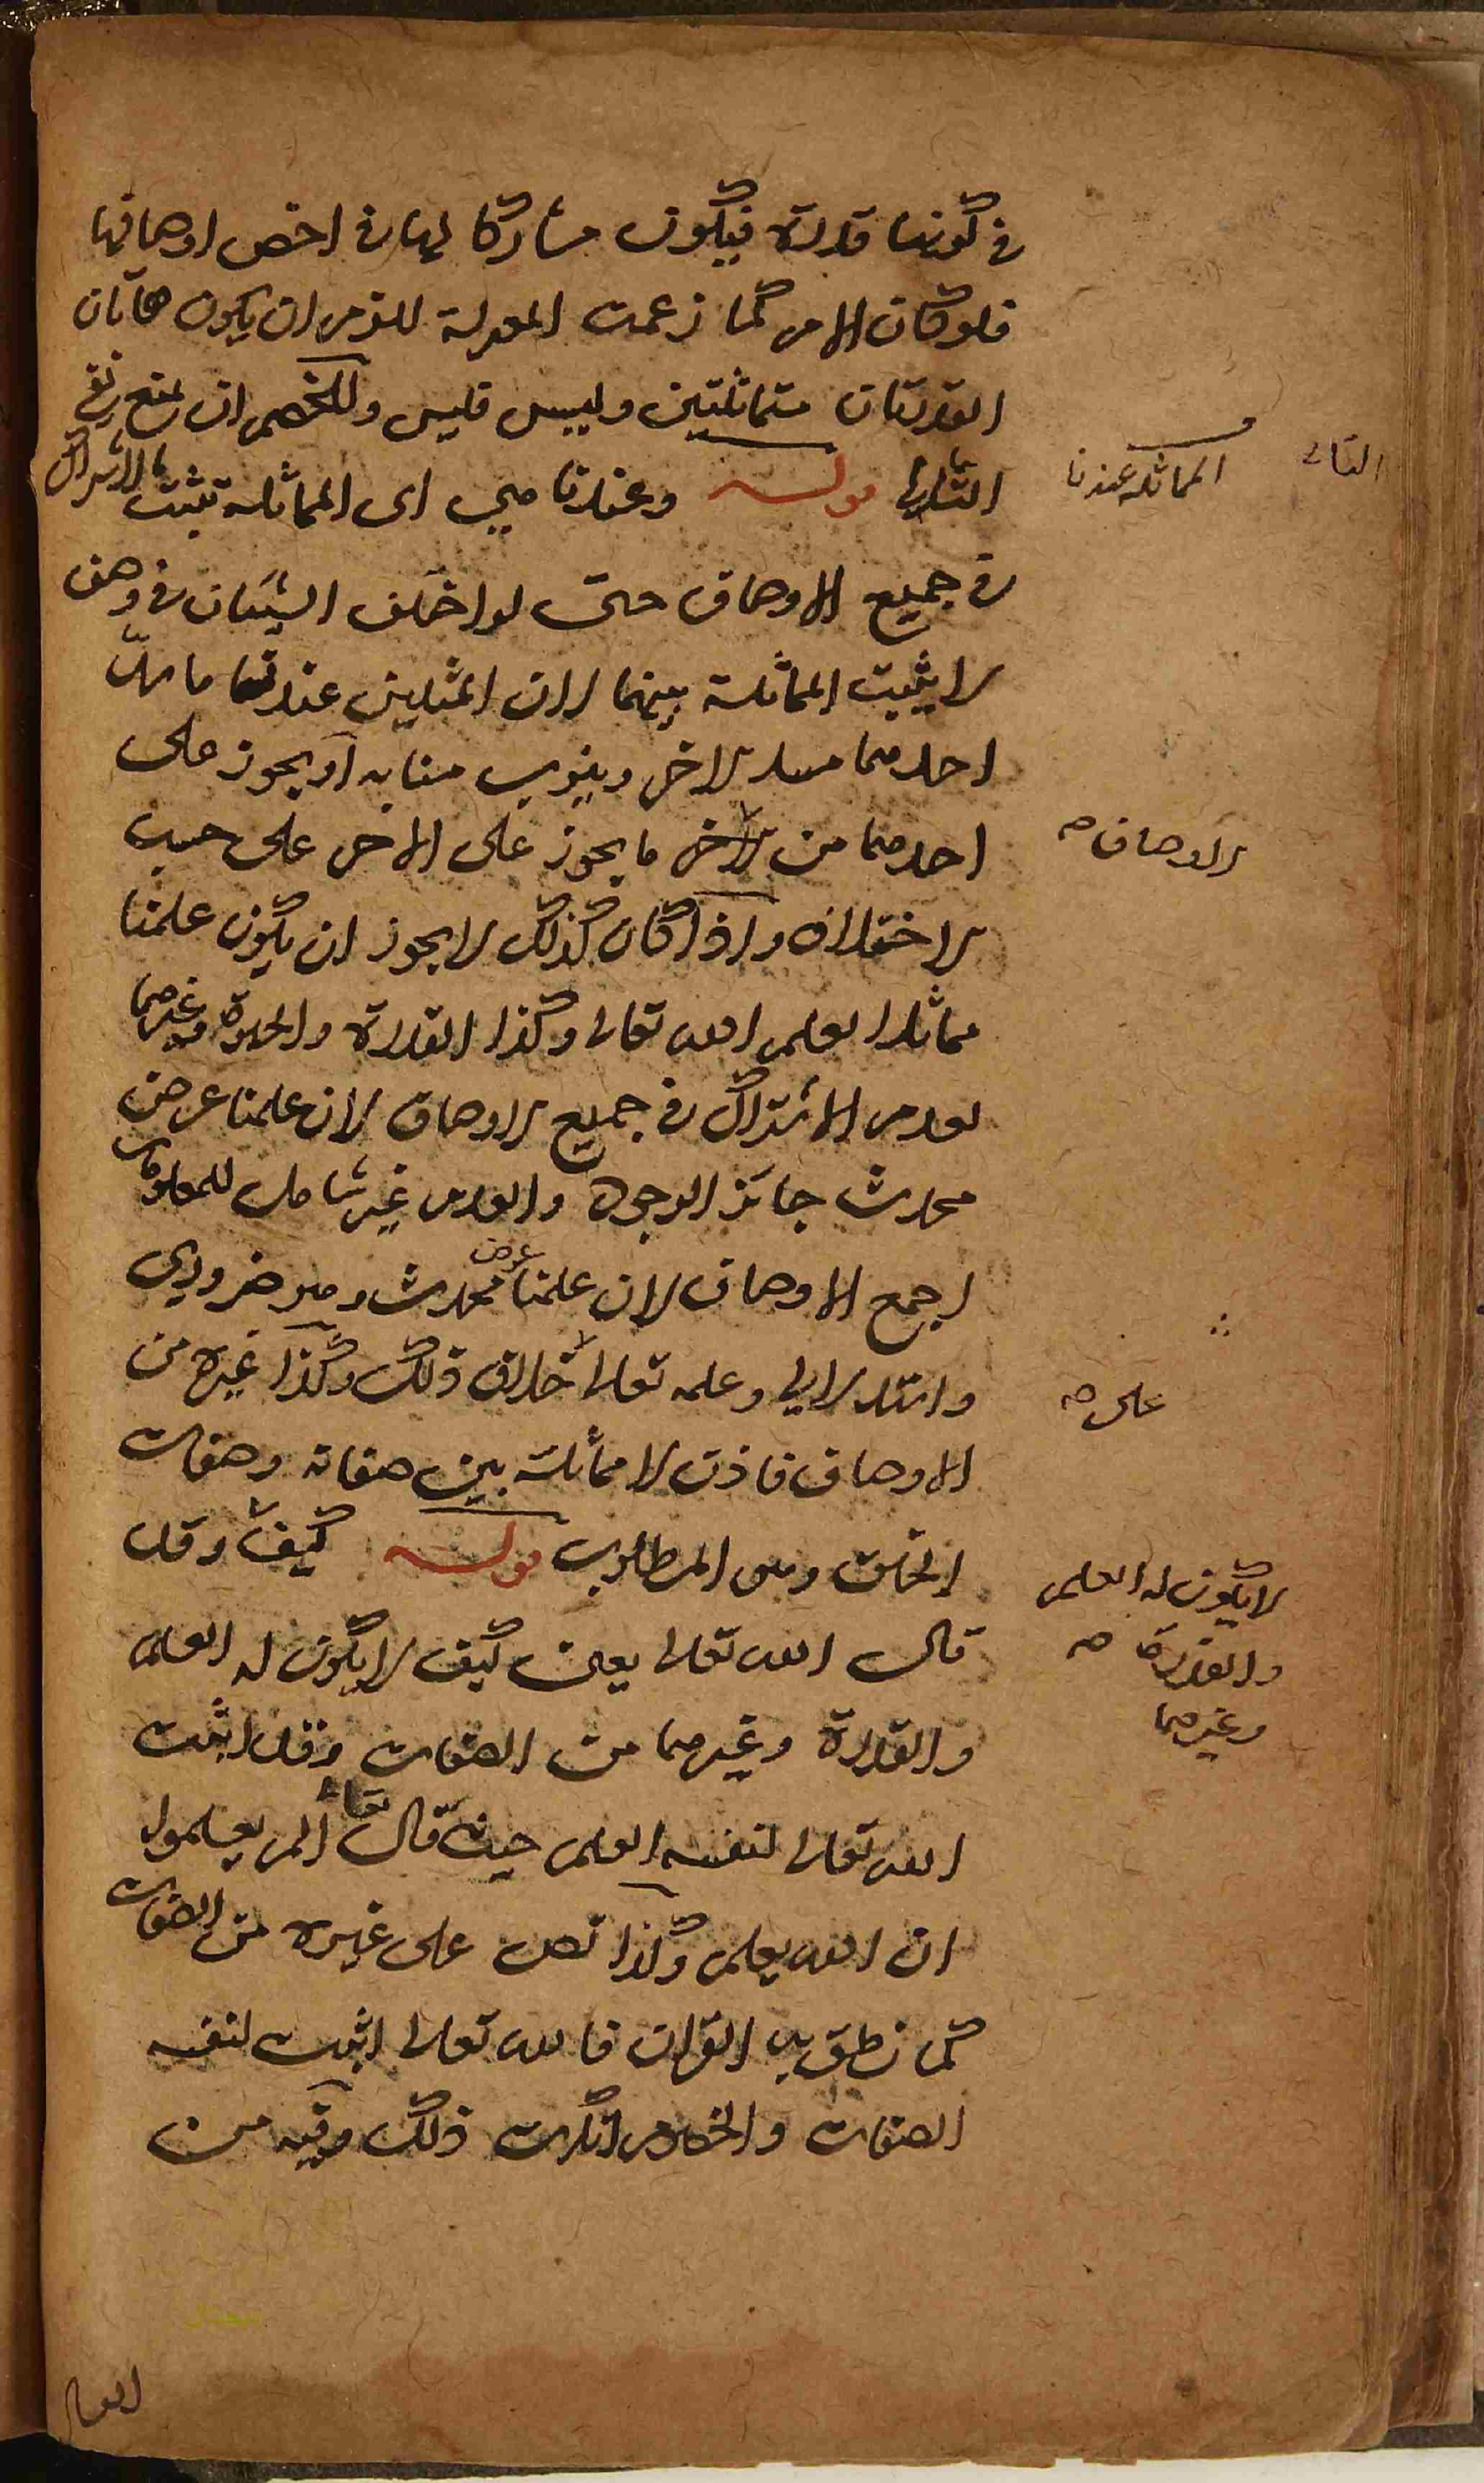 في كونها قدرة فيكون مشاركا لها في اخص اوصافها
فلو كان الامر كما زعمت المعتزلة للزم ان يكون هاتان
القدرتان متماثلتين وليس فليس وللخصم ان يمنع نفي
التالي قوله وعندنا هي اى المماثلة تثبت بالاشتراك
في جميع الاوصاف حتى لو اختلف الشيئان في وصف
لا يثبت المماثلة بينهما لان المثلين عندنا ما يسد
احدهما مسد الاخر وينوب منابه او يجوز على
احدهما من الاخر ما يجوز على الاخر على حسب
الاختلاف واذا كان كذلك لا يجوز ان يكون علمنا
مماثلا لعلم الله تعالى وكذا القدرة والحيوة وغيرهما
لعدم الاشتراك في جميع الاوصاف لان علمنا عرض
محدث جائز الوجود والعدم غير شامل للمعلومات
اجمع الاوصاف لان علمنا عرض محدث وهو ضروري
واستدلالي وعلمه تعالى خلاف ذلك وكذا غيره من
الاوصاف فاذن لا مماثلة بين صفاته وصفات
الخلق وهو المطلوب قوله كيف وقد
قال الله تعالى يعني كيف لا يكون له العلم
والقدرة وغيرهما من الصفات وقد اثبت
الله تعالى لنفسه العلم حيث قال تعالى ألم يعلموا
ان الله يعلم وكذا نص على غيره من الصفات
كما نطق به القران فالله تعالى اثبت لنفسه
الصفات والخصوم انكرت ذلك وفيه من
التالى
المماثلة عندنا
الاوصاف صح
على صح
لا يكون له العلم
والقدرة صح
وغيرهما